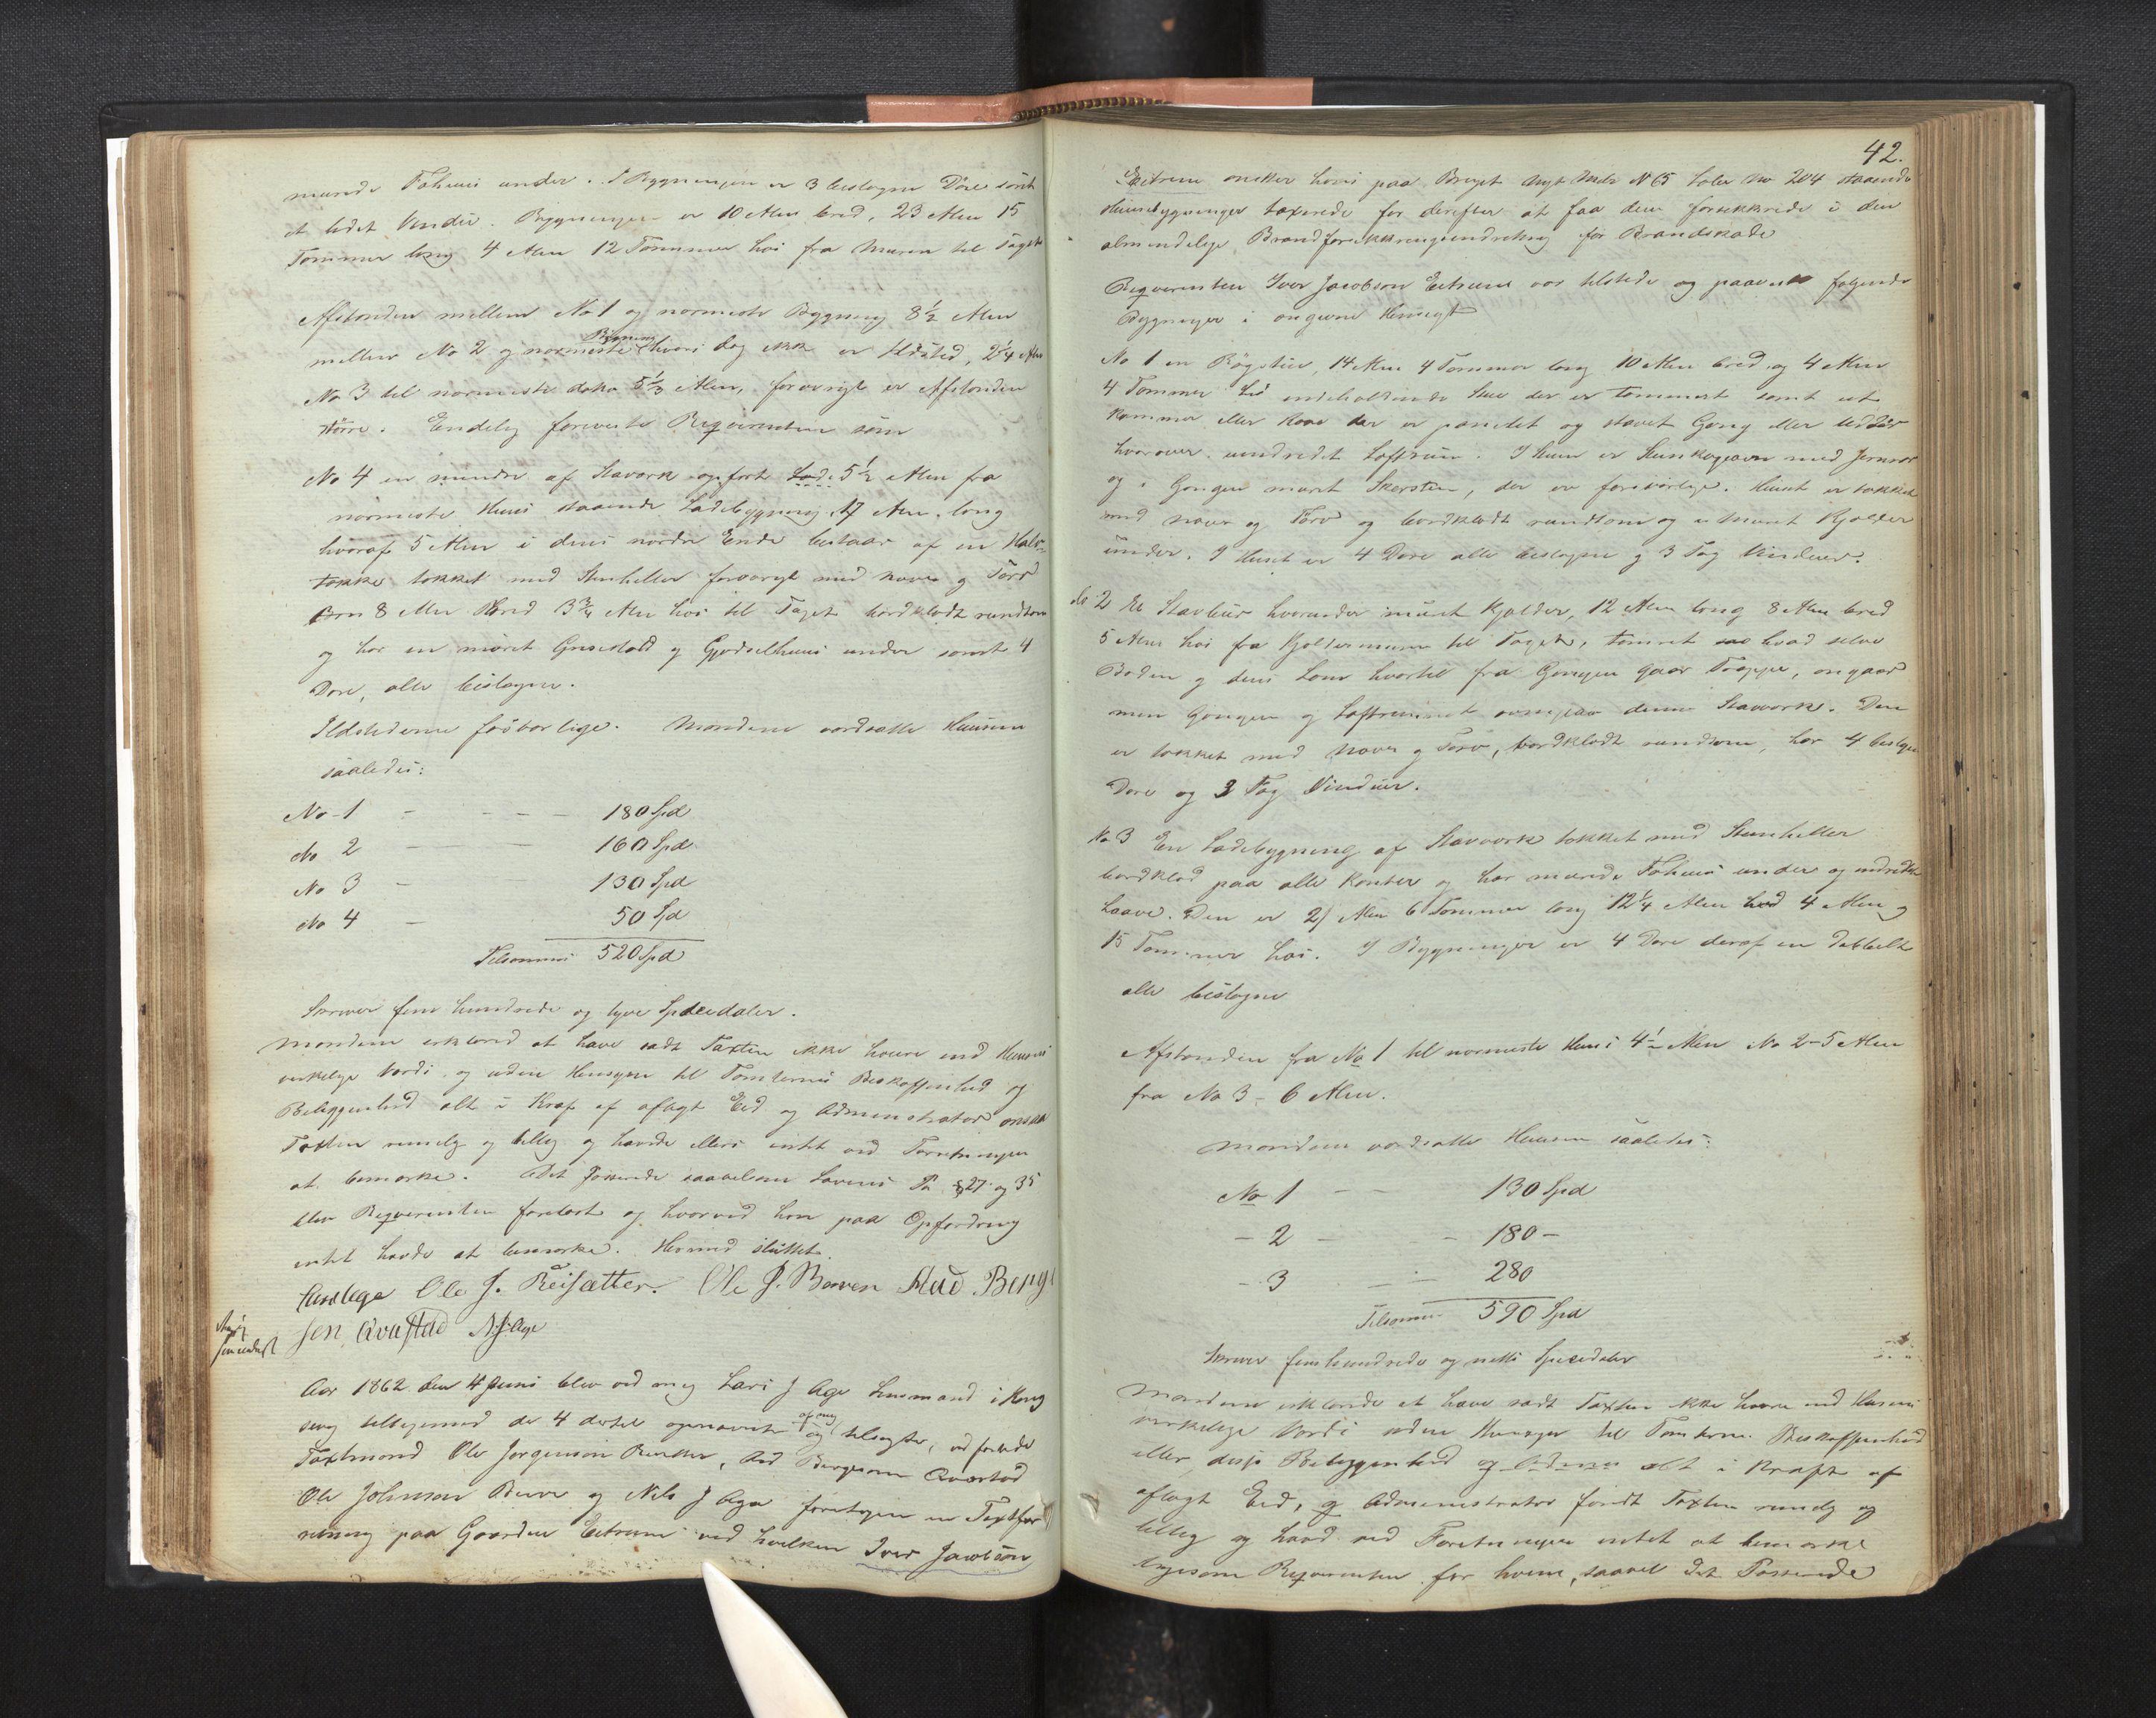 murede Føhuus under. I Bygningen er 3 beslagne Døre samt
et lidet Vindu. Bygningen er 10 Alen bred, 23 Alen 15
Tommer lang 4 Alen 12 Tommer høi fra Muren til Taget
Afstanden mellem No 1 og nærmeste Bygning 8½ Alen
mellem No 2 og nærmeste Bygning hvori dog ikke er Ildsted, 2¼ Alen
No 3 til nærmeste dito 5⅓ Alen, forøvrigt er Afstanden
større. Endelig foreviste Reqvirenten som
No 4 en mindre af Staværk opført Lade 5½ Alen fra
nærmeste Huus staaende Ladebygning 17 Alen lang
hvoraf 5 Alen i dens nordre Ende bestaar af en Halv-
tække tækket med Steenheller forøvrigt med Næver og Torv
8 Alen bred 3¾ Alen høi til Taget bordklædt rundtom
og har en muret Grisestald og Gjødselhuus under samt 4
Døre, alle beslagne.
Ildstederne forsvarlige. Mændene værdsatte Husene
saaledes:
No 1 - - - - 180 Spd
No 2 - - - 160 Spd
No 3 - - 130 Spd
No 4 - 50 Spd
Tilsammen 520 Spd
Skriver fem hundrede og tyve Speciedaler.
Mændene erklæred at have sadt Taxten ikke høiere end Husenes
virkelige Værdi og uden Hensyn til Tomternes Beskaffenhed og
Beliggenhed alt i Kraft af aflagt Eed og Administrator ansaa
Taxten rimelig og billig og havde ellers intet ved Forretningen
at bemærke. Det Passerede saavelsom Lovens § 27 og 35
blev Reqvirenten forelæst og hvorved han paa Opfordring
intet havde at bemærke. Hermed sluttet.
Lars Aga Ole J. Reisætter. Ole J. Berven Aad Beng
sen Qvæstad N. J. Aga
Aar 1862 den 4 Juni blev ved mig Lars J Aga Lensmand i King
servig tilligemed de 4 dertil opnævnte og af mig tilsagte, ed forbudne
Taxtmænd Ole Jørgensen, Aad Bengtsen Qvæstad
Ole Johnsen Berve og Nils J Aga foretagen en Taxtfor
retning paa Gaarden Eitrum ved hvilken Iver Jacobsen
42.
Eitrum ønsker hans paa Bruget Nyt Matr N 65 Løbe No 204 staaende
Huusbygninger taxerede for derefter at faa dem forsikkrede i den
almindelige Brandforsikkringsindretning for Brandskade
Reqvirenten Iver Jacobsen Eitrum var tilstede og paaviste følgende
Bygninger i angivne Hensigt
No 1 en Røgstue, 14 Alen 4 Tommer lang 10 Alen bred og 4 Alen
4 Tommer høi indeholdende Stue der er tømmert samt et
Kammer eller Kove der er panelet og stavet Gang eller Uddør
hvorover indredet Loftrum. I Stuen er Steenkogeovn med Jernrør
og i Gangen muret Skorsteen, der er forsvarlige. Huset er tækket
med Næver og Torv og bordklædt rundtom og er muret Kjelder
under. I Huset er 4 Døre alle beslagne og 3 Fag Vinduer.
No 2 Et Stavbur hvorunder muret Kjelder, 12 Alen lang 8 Alen bred
5 Alen høi fra Kjeldermuren til Taget, tømret hvad selve
Boden og dens Lem hvortil fra Gangen gaar Trappe, angaar
men Gangen og Loftrummet denne Stavværk. Den
er tækket med Næver og Torv, bordklædt rundtom, har 4 beslagne
Døre og 3 Fag Vinduer.
No 3 En Ladebygning af Stavværk tækket med Steenheller
bordklæd paa alle Kanter og har murede Føhuus under og indredt
Laave. Den er 21 Alen 6 Tommer lang 12¼ Alen bred 4 Alen og
15 Tommer høi. I Bygningen er 4 Døre deraf en dobbelt
alle beslagne
Afstanden fra No 1 til nærmeste Huus 4½ Alen No 2 - 5 Alen
fra No 3 - 6 Alen.
Mændene værdsatte Husene saaledes:
No 1 - - 130 Spd
- 2 - - 180 -
- 3 - - 280
Tilsammen 590 Spd
Skriver femhundrede og nitti Speciedaler
Mændene erklærede at have sadt Taxten ikke høiere end Husenes
virkelige Værdi uden Hensyn til Tomternes Beskaffenhed
eller disses Beliggenhed alt i Kraft af
aflagt Eed, og Administrator fandt Taxten rimelig og
billig og havd ved Forretningen intet at bemærke
ligesom Reqvirenten for hvem, saavel det Passerede